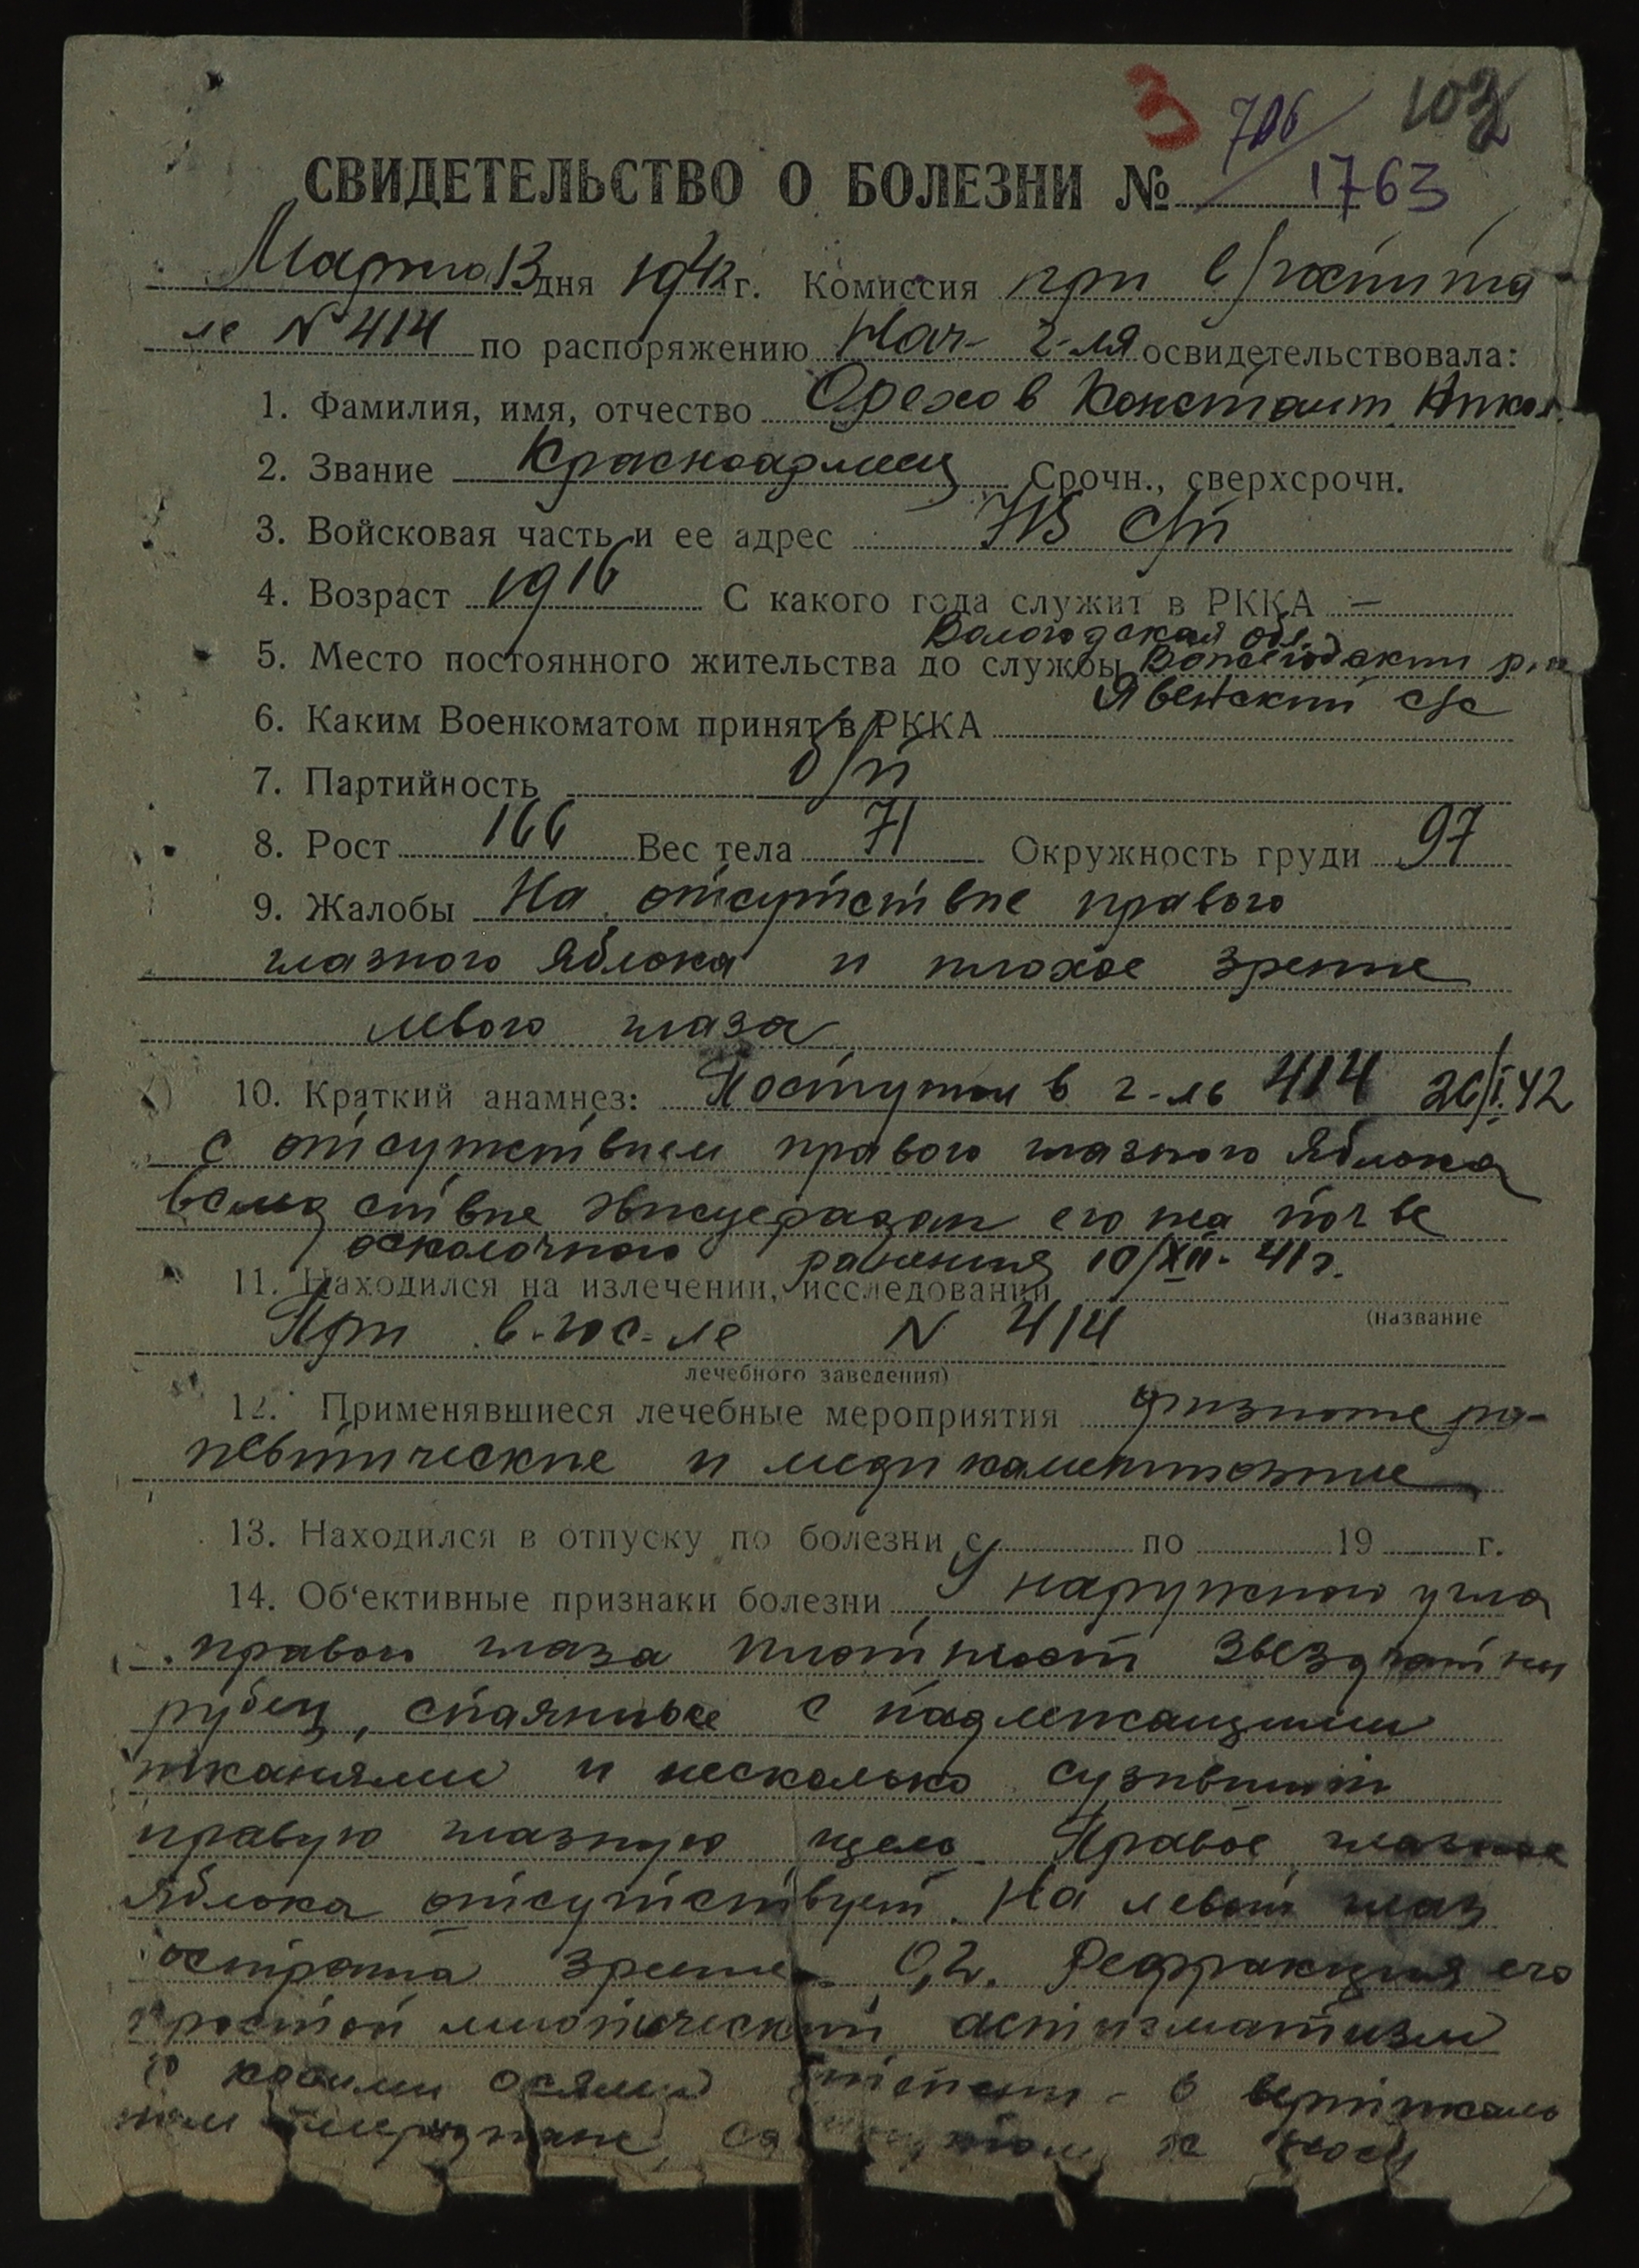 3 706 102
СВИДЕТЕЛЬСТВО О БОЛЕЗНИ № 1763
Марта 13 дня 1942 г. Комиссия при в/госпита
ле N 414 по распоряжению Нач- г-ля освидетельствовала:
1. Фамилия, имя, отчество Орехов Констант. Никол.
2. Звание Красноармеец Срочн., сверхсрочн.
3. Войсковая часть и ее адрес 715 с/п
4. Возраст 1916 С какого года служит в РККА —
Вологодская обл.
5. Место постоянного жительства до службы Вожегодский р-н
Явенский с/с
6. Каким Военкоматом принят в РККА
7. Партийность б/п
8. Рост 166 Вес тела 71 Окружность груди 97
9. Жалобы На отсутствие правого
глазного яблока и плохое зрение
левого глаза
10. Краткий анамнез: Поступил в г-ль 414 26/I.42
с отсутствием правого глазного яблока
вследствие эвисцерации его на почве
осколочного ранения 10/XII-41г.
11. Находился на излечении, исследовании
(название
При в-гос-ле N 414
лечебного заведения)
12. Применявшиеся лечебные мероприятия физиотера-
певтические и медикаментозные
13. Находился в отпуску по болезни с по 19 г.
14. Об'ективные признаки болезни У наружного угла
правого глаза плотный звездчатый
рубец, спаянные с надлежащими
тканями и несколько сузивший
правую глазную щель. Правое глазное
яблоко отсутствует. На левый глаз
острота зрения 0,2. Рефракция его
простой миопический астигматизм
с косыми осями - в вертикаль
ном меридиане к носу